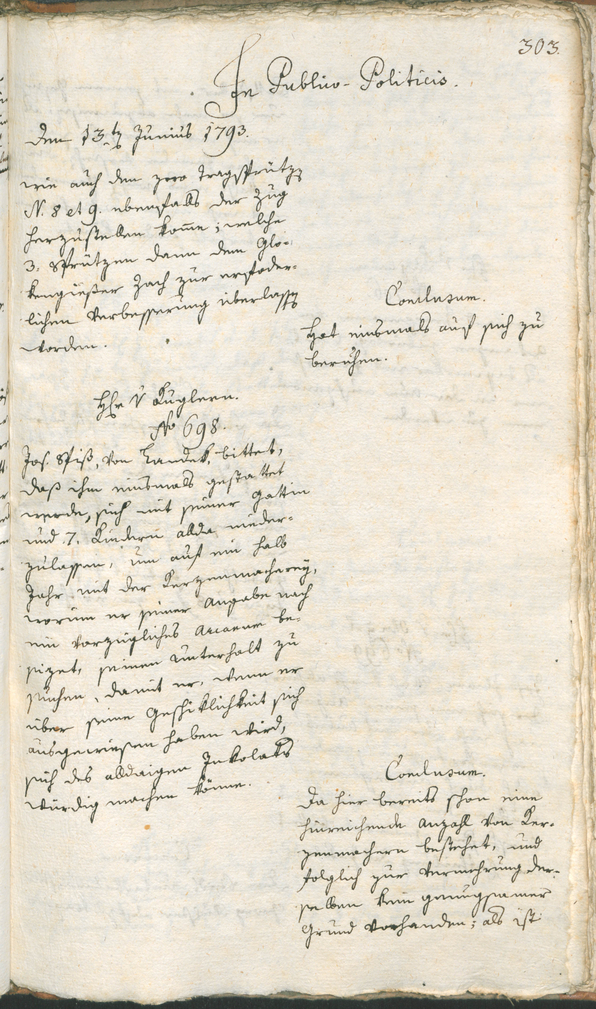 303.
In Publico-Politicis.
Den 13ten Junius 1793.
wie auch den zwo Tragsprützen
N. 8 et 9. ebenfalls der Zug
herzustellen komme; welche
3. Sprützen dann dem Glo-
kengießer Zach zur erfoder-
lichen Verbesserung überlassen
worden.
Conclusum.
Hat einsmals auf sich zu
beruhen.
Hr. v Kuglern.
No 698.
Jos. Spiß, von Landek, bittet,
daß ihm einsmals gestattet
werde, sich mit seiner Gattin
und 7. Kindern allda nieder-
zulassen, um auf ein halb
Jahr, mit der Kerzenmacherey,
worum er seiner Angabe nach
ein vorzügliches Arcanum be-
sizet, seinen Unterhalt zu
suchen, damit er, wenn er
über seine Geschiklichkeit sich
ausgewiesen haben wird,
sich des alldaigen Inkolats
würdig machen könne.
Conclusum.
Da hier bereits schon eine
hinreichende Anzahl von Ker-
zenmachern bestehet, und
folglich zur Vermehrung der-
selben kein genugsamer
Grund vorhanden; als ist